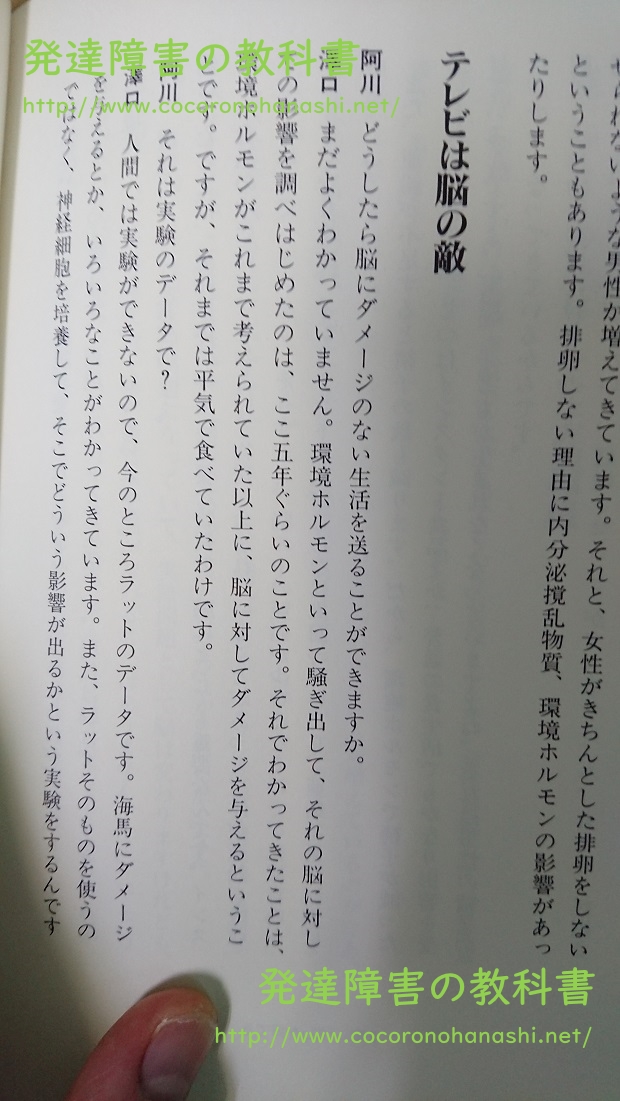 発達障害の教科書
http://www.cocoronohanashi.net/
せられないような男性が増えてきています。それと、女性がきちんとした排卵をしない
ということもあります。排卵しない理由に内分泌撹乱物質、環境ホルモンの影響があっ
たりします。
テレビは脳の敵
阿川 どうしたら脳にダメージのない生活を送ることができますか。
澤口 まだよくわかっていません。環境ホルモンといって騒ぎ出して、それの脳に対し
ての影響を調べはじめたのは、ここ五年ぐらいのことです。それでわかってきたことは、
環境ホルモンがこれまで考えられていた以上に、脳に対してダメージを与えるというこ
とです。ですが、それまでは平気で食べていたわけです。
阿川 それは実験のデータで?
澤口 人間では実験ができないので、今のところラットのデータです。海馬にダメージ
を与えるとか、いろいろなことがわかってきています。また、ラットそのものを使うの
ではなく、神経細胞を培養して、そこでどういう影響が出るかという実験をするんです
発達障害の教科書
http://www.cocoronohanashi.net/